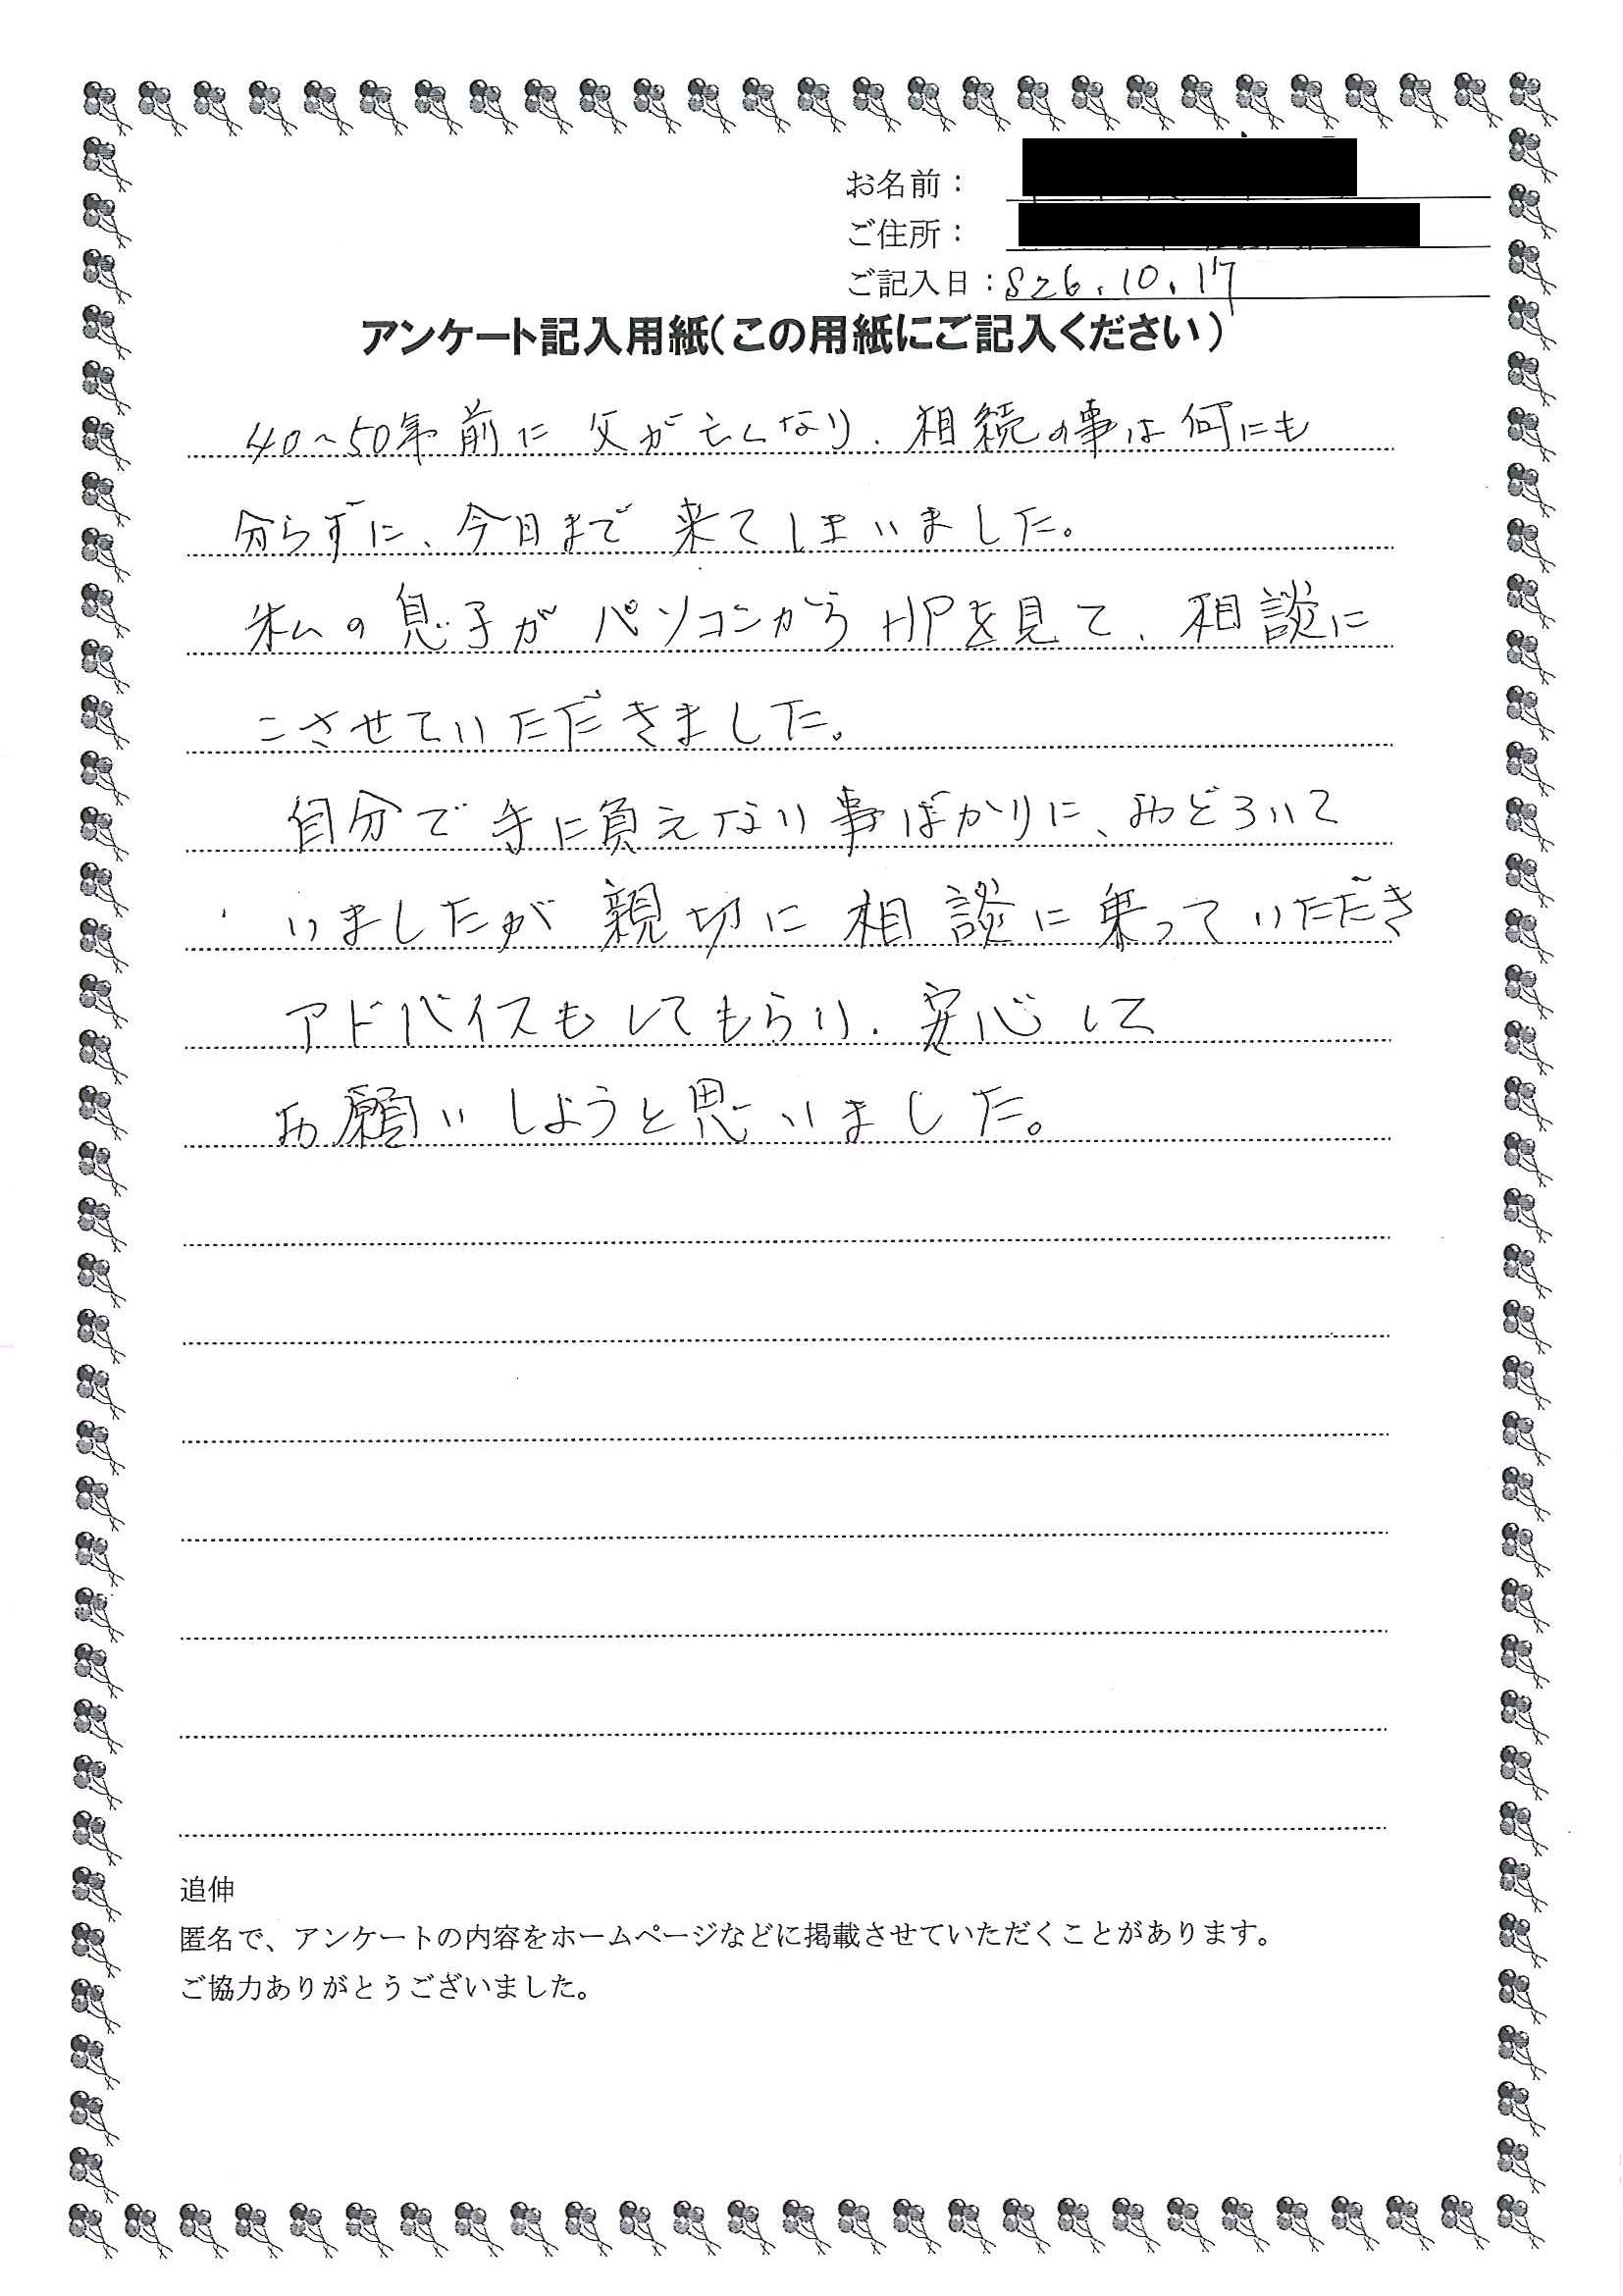 お名前：
ご住所：
ご記入日：S26.10.17
アンケート記入用紙（この用紙にご記入ください）
40～50年前に父が亡くなり、相続の事は何にも
分らずに、今日まで来てしまいました。
私の息子がパソコンからHPを見て、相談に
こさせていただきました。
自分で手に負えない事ばかりに、おどろいて
いましたが親切に相談に乗っていただき
アドバイスもしてもらい、安心して
お願いしようと思いました。
追伸
匿名で、アンケートの内容をホームページなどに掲載させていただくことがあります。
ご協力ありがとうございました。